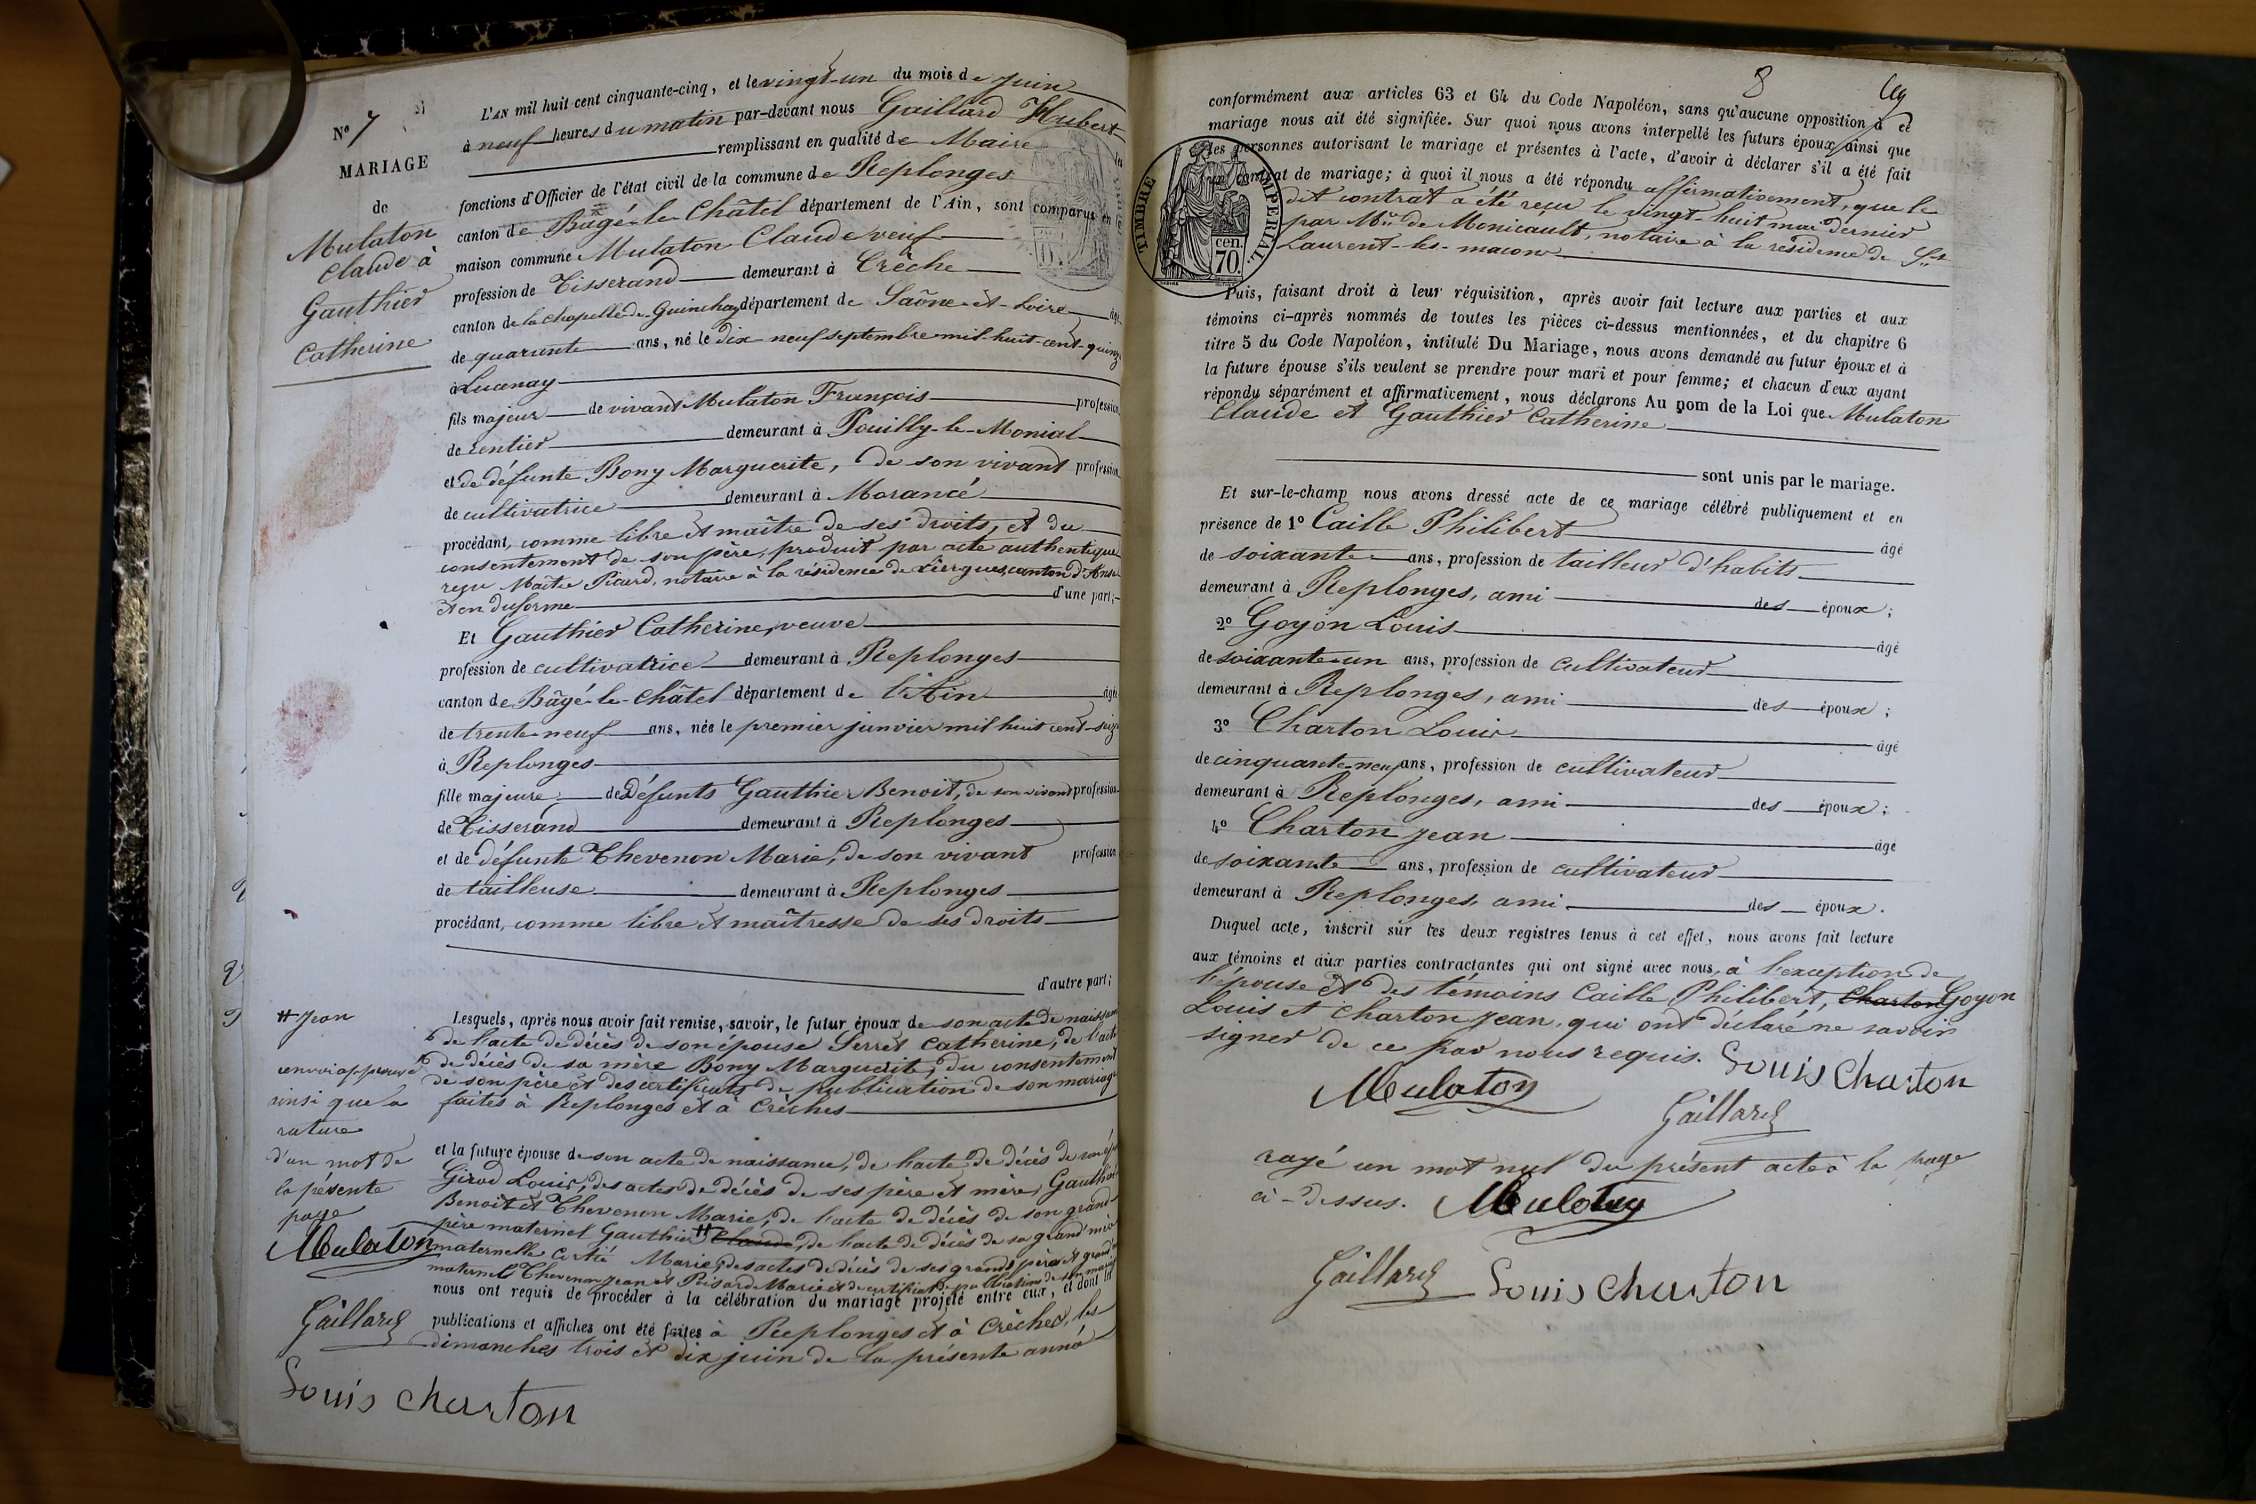 N° 7
MARIAGE
de
Mulaton
Claude à
Gauthier
Catherine
L'AN mil huit cent cinquante-cinq, et le vingt-un du mois de juin
à neuf heures du matin par-devant nous Gaillard Hubert
remplissant en qualité de Maire
fonctions d'Officier de l'état civil de la commune de Replonges
canton de Bâgé-le-Châtel département de l'Ain, sont comparus en
maison commune Mulaton Claude veuf
profession de Tisserand demeurant à Crêche
canton de la Chapelle-de-Guinchay département de Saône-et-Loire âgé
de quarante ans, né le dix-neuf septembre mil-huit-cent-quinze
à Lucenay
fils majeur de vivant Mulaton François profession
de rentier demeurant à Pouilly-le-Monial
et de défunte Bony Marguerite, de son vivant profession
de cultivatrice demeurant à Morancé
procédant, comme libre et maître de ses droits, et du
consentement de son père, produit par acte authentique
reçu Maître Picard, notaire à la résidence de canton d'Anse
et en du forme d'une part;
Et Gauthier Catherine, veuve
profession de cultivatrice demeurant à Replonges
canton de Bâgé-le-Châtel département de l'Ain âgée
de trente-neuf ans, née le premier janvier mil huit cent-seize
à Replonges
fille majeure de Défunts Gauthier Benoit, de son vivant profession
de Tisserand demeurant à Replonges
et de défunte Thevenon Marie, de son vivant profession
de tailleuse demeurant à Replonges
procédant, comme libre et maîtresse de ses droits
d'autre part;
Lesquels, après nous avoir fait remise, savoir, le futur époux de son acte de naissance
de l'acte de décès de son épouse Serret Catherine, de l'acte
de décès de sa mère Bony Marguerite, du consentement
de son père et des certificats de publication de son mariage
faites à Replonges et à Crêches
et la future épouse de son acte de naissance, de l'acte de décès de
Girod Louis, des actes de décès de ses père et mère, Gauthier
Benoit et Thevenon Marie, de l'acte de décès de son grand
père maternel Gauthier # Claude, de l'acte de décès de sa grand'mère
maternelle Marie, des actes de décès de ses grands pères et grand
maternels Thevenon Jean et Marie et de certificat de publications de son mariage
nous ont requis de procéder à la célébration du mariage projeté entre eux, et dont les
publications et affiches ont été faites à Replonges et à Crèches, les
dimanches trois et dix juin de la présente année
# Jean
renvoi approuvé
ainsi que la
rature
d'un mot de
la présente
page
Mulaton
Gaillard
Louis Charton
8
conformément aux articles 63 et 64 du Code Napoléon, sans qu'aucune opposition à ce
mariage nous ait été signifiée. Sur quoi nous avons interpellé les futurs époux ainsi que
les personnes autorisant le mariage et présentes à l'acte, d'avoir à déclarer s'il a été fait
un contrat de mariage; à quoi il nous a été répondu affirmativement, que le
dit contrat a été reçu le vingt-huit mai dernier
par Me de Monicault, notaire à la résidence de St
Laurent-les-macon
TIMBRE IMPERIAL
70 cen.
Puis, faisant droit à leur réquisition, après avoir fait lecture aux parties et aux
témoins ci-après nommés de toutes les pièces ci-dessus mentionnées, et du chapitre 6
titre 5 du Code Napoléon, intitulé Du Mariage, nous avons demandé au futur époux et à
la future épouse s'ils veulent se prendre pour mari et pour femme; et chacun d'eux ayant
répondu séparément et affirmativement, nous déclarons Au nom de la Loi que Mulaton
Claude et Gauthier Catherine
sont unis par le mariage.
Et sur-le-champ nous avons dressé acte de ce mariage célébré publiquement et en
présence de 1° Caille Philibert âgé
de soixante ans, profession de tailleur d'habits
demeurant à Replonges, ami des époux;
2° Goyon Louis âgé
de soixante-un ans, profession de cultivateur
demeurant à Replonges, ami des époux;
3° Charton Louis âgé
de cinquante-neuf ans, profession de cultivateur
demeurant à Replonges, ami des époux;
4° Charton Jean âgé
de soixante ans, profession de cultivateur
demeurant à Replonges, ami des époux.
Duquel acte, inscrit sur les deux registres tenus à cet effet, nous avons fait lecture
aux témoins et aux parties contractantes qui ont signé avec nous, à l'exception de
l'épouse et des témoins Caille Philibert, Charton Goyon
Louis et Charton Jean, qui ont déclaré ne savoir
signer de ce par nous requis. Louis Charton
Mulaton
Gaillard
rayé un mot nul du présent acte à la page
ci-dessus. Mulaton
Gaillard Louis Charton